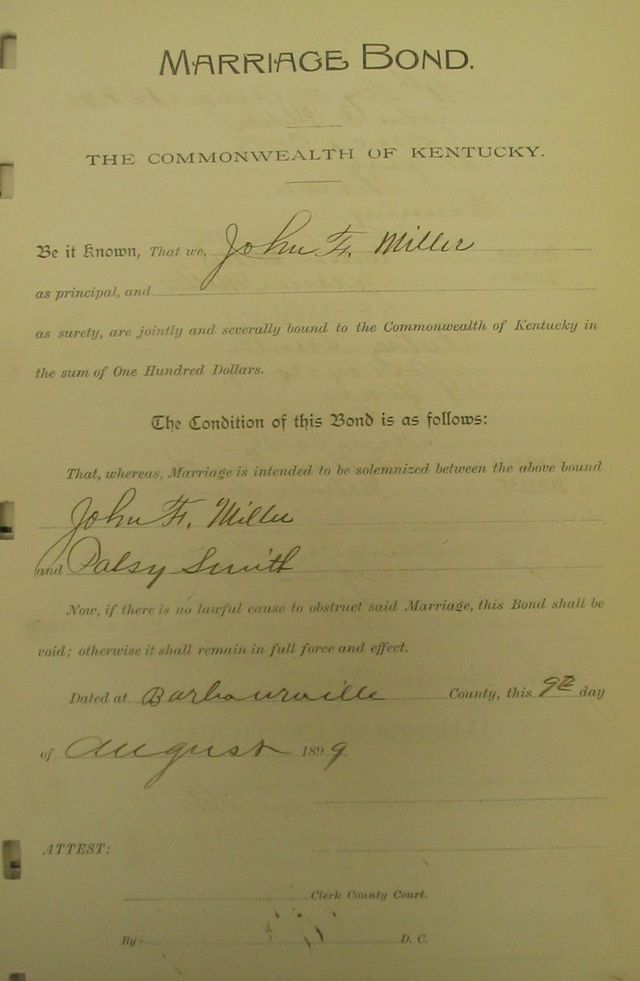 MARRIAGE BOND.
THE COMMONWEALTH OF KENTUCKY.
Be it Known, That we, John F. Miller
as principal, and
as surety, are jointly and severally bound to the Commonwealth of Kentucky in
the sum of One Hundred Dollars.
The Condition of this Bond is as follows:
That, whereas, Marriage is intended to be solemnized between the above bound
John F. Miller
and Patsy Smith
Now, if there is no lawful cause to obstruct said Marriage, this Bond shall be
void; otherwise it shall remain in full force and effect.
Dated at Barbourville County, this 9th day
of August 1899
ATTEST:
Clerk County Court.
By D. C.